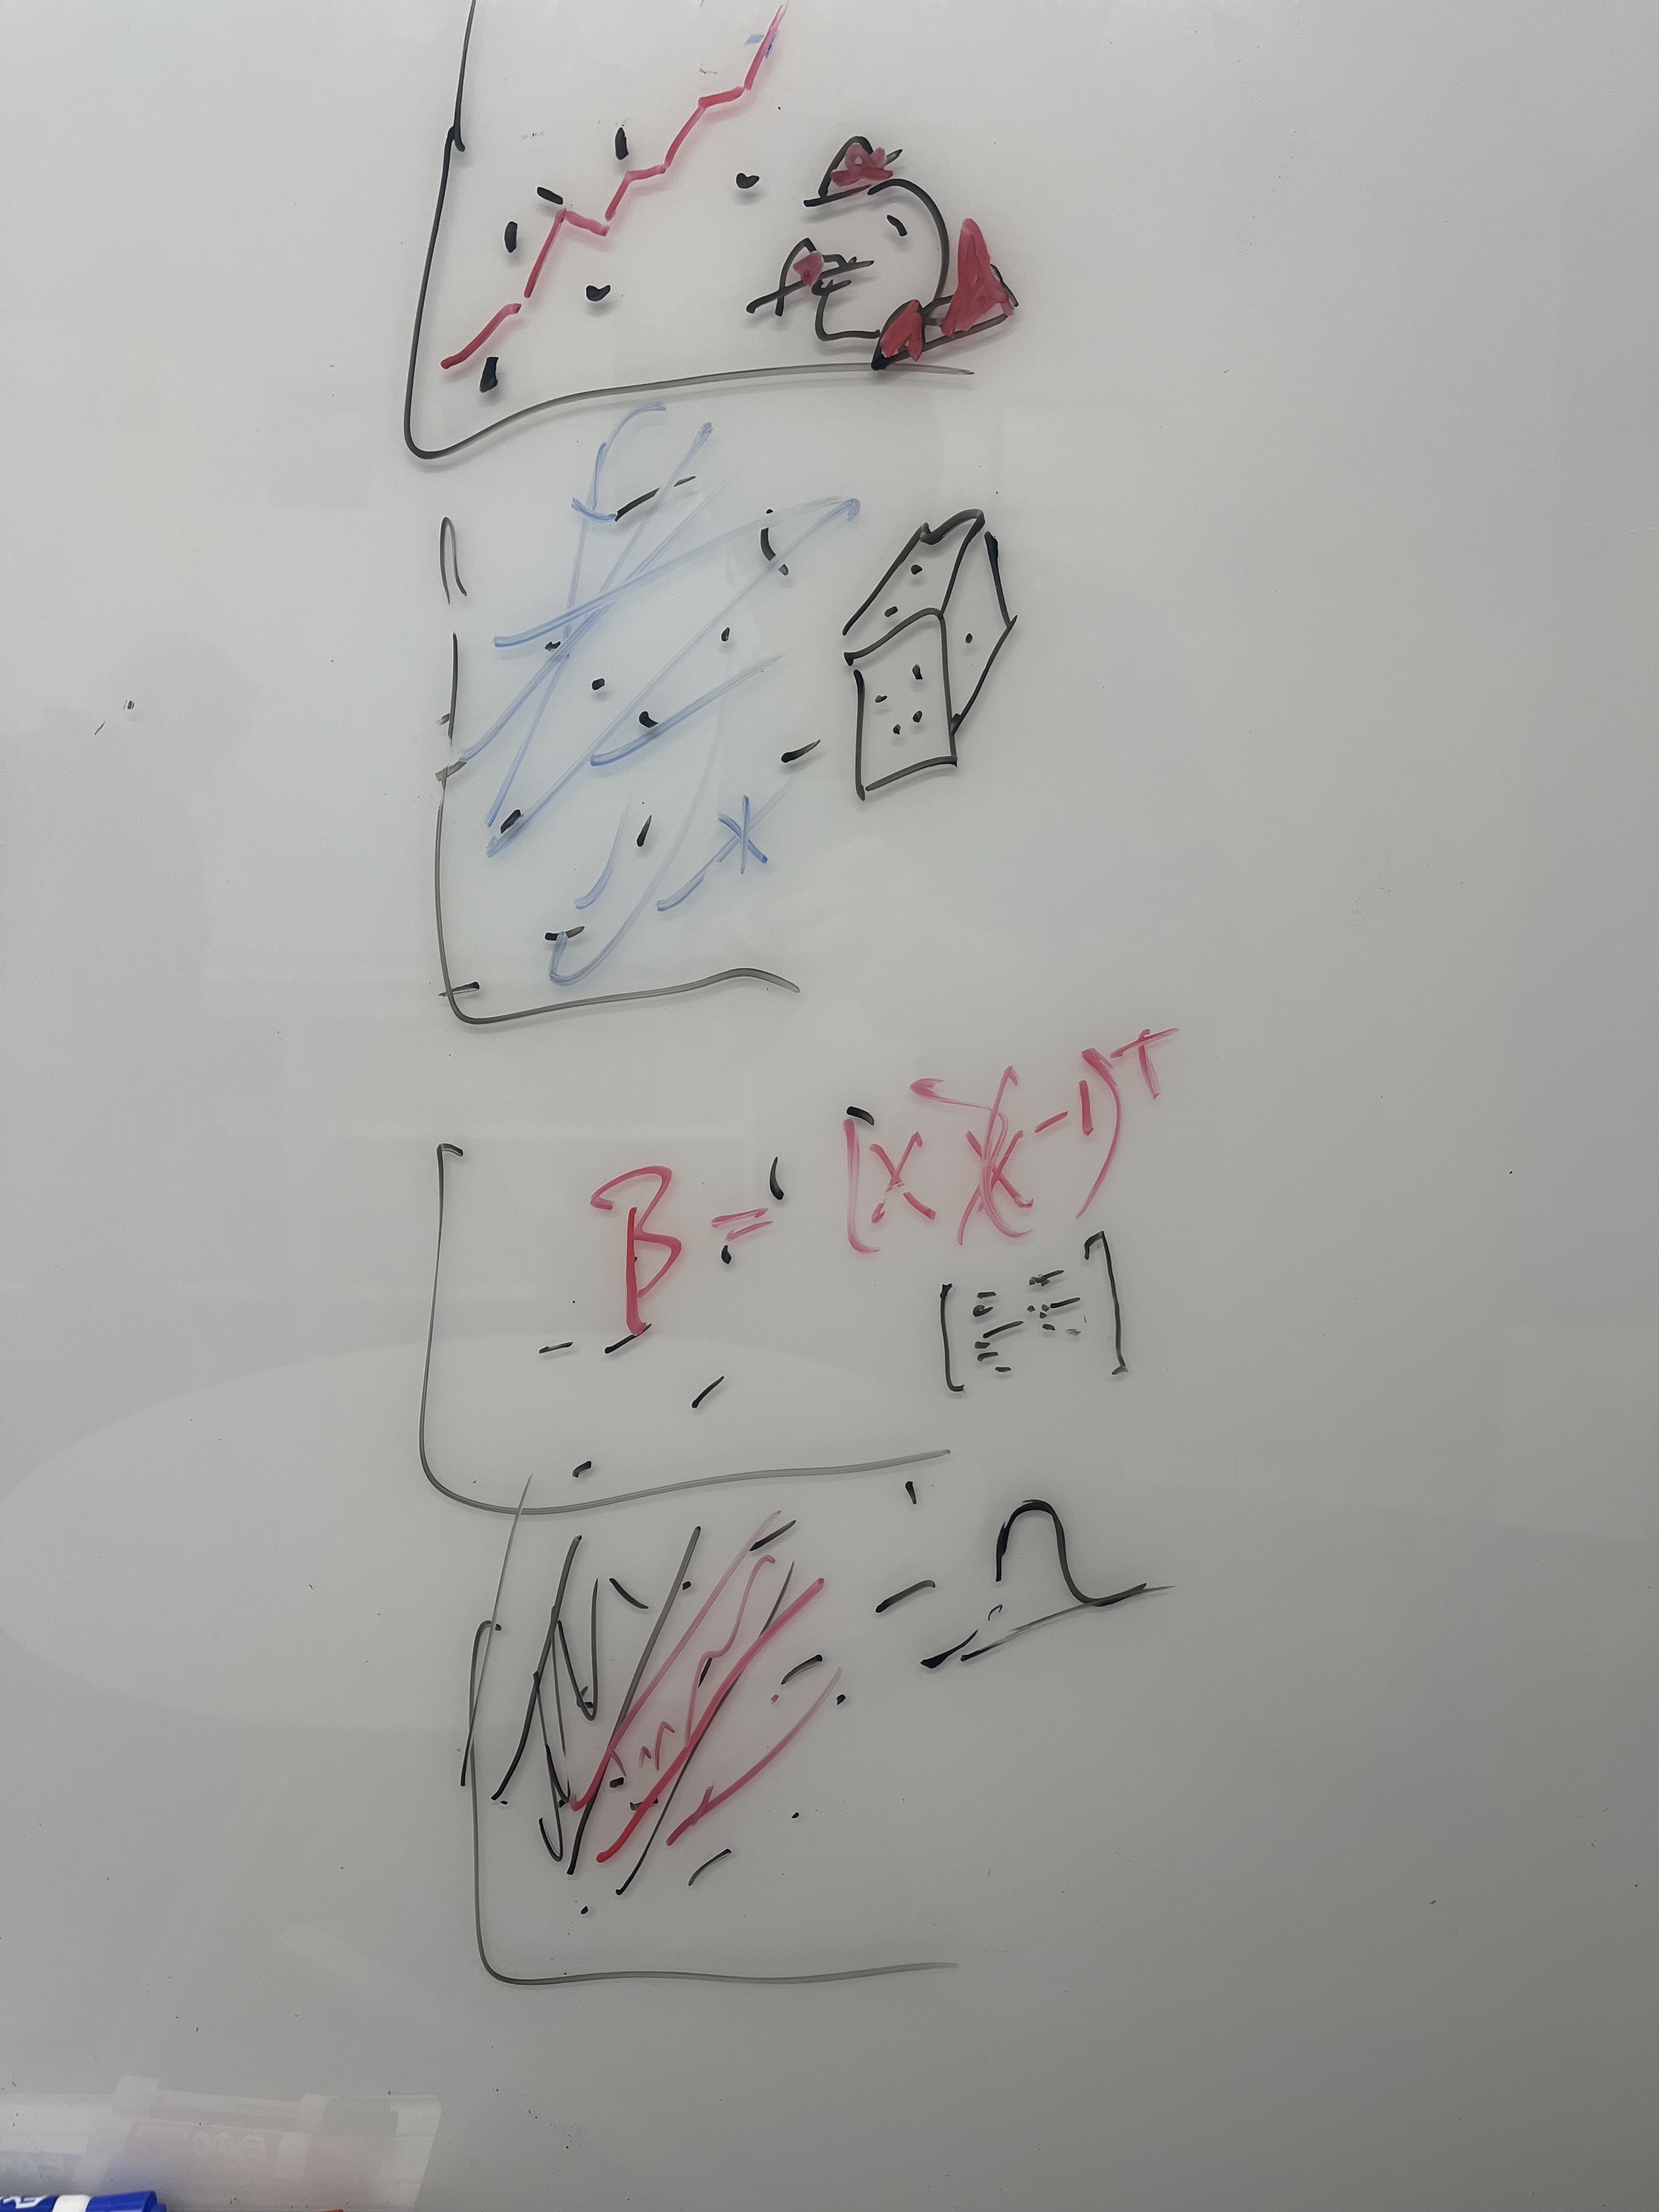 β = (X X^-1)^T